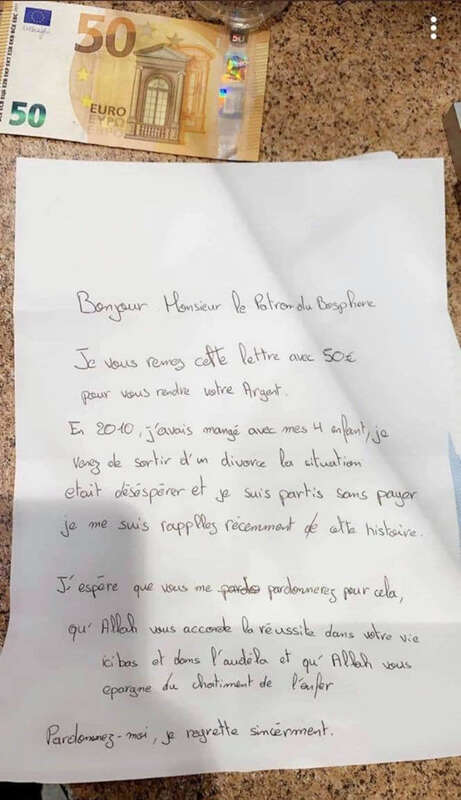 50
50
EURO
ΕΥΡΩ
Bonjour Monsieur le Patron du Bosphore
Je vous remez cette lettre avec 50€
pour vous rendre votre Argent.
En 2010, j'avais mangé avec mes 4 enfant, je
venez de sortir d'un divorce la situation
etait désespérer et je suis partis sans payer
je me suis rappllez récemment de cette histoire.
J'éspère que vous me pardonnerez pour cela,
qu'Allah vous accorde la réussite dans votre vie
ici bas et dans l'audéla et qu'Allah vous
epargne du chatiment de l'enfer
Pardonnez-moi, je regrette sincèrment.